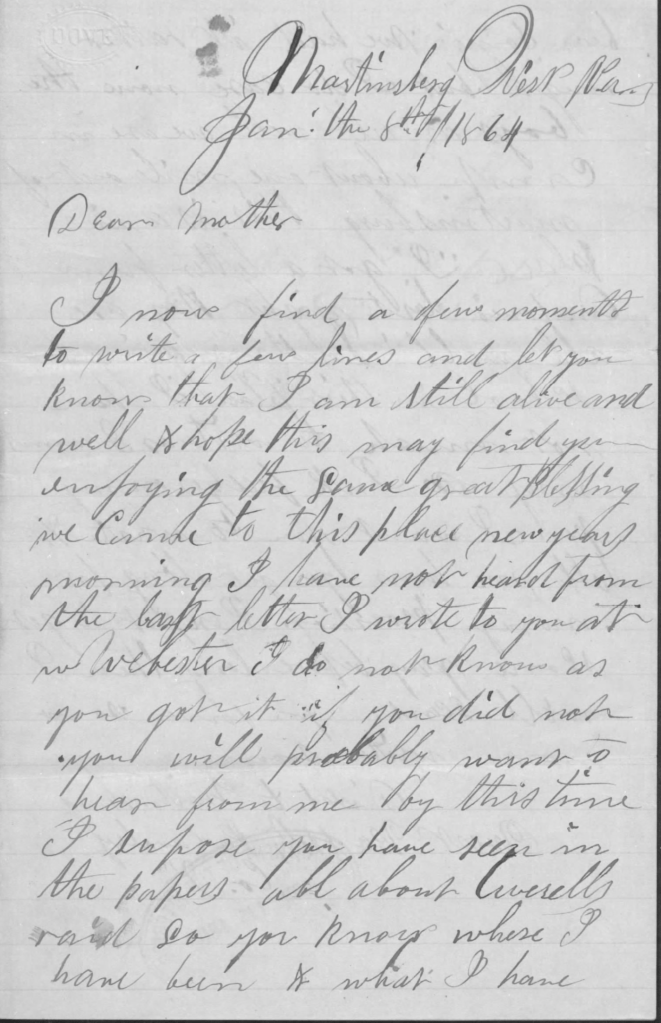 Martinsberg West Va.
Jan. the 8th / 1864
Dear Mother
I now find a few moments
to write a few lines and let you
know that I am still alive and
well & hope this may find you
enjoying the same great blessing
we Came to this place new years
morning I have not heard from
the last letter I wrote to you at
Webester I do not know as
you got it if you did not
you will probably want to
hear from me by this time
I supose you have seen in
the papers all about
raid so you know where I
have been & what I have